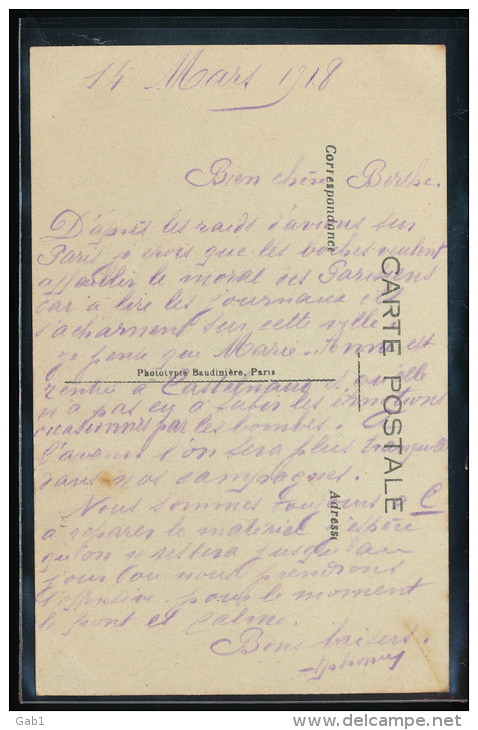 14 Mars 1918
Bien chère Berthe.
D'après les raids d'avions sur
Paris je crois que les boches veulent
affaiblir le moral des Parisiens
car à lire les journaux ils
s'acharnent sur cette ville
je pense que Marie-Anne est
rentrée à Castelnau et qu'elle
n'a pas eu à subir les émotions
par les bombes.
l'on sera plus tranquille
dans nos campagnes.
Nous sommes toujours à C
à réparer le matériel espère
qu'on restera jusqu'au
jour où nous prendrons
l'offensive. pour le moment
le front est calme.
Bons baisers.
Correspondance
CARTE POSTALE
Phototypie Baudinière, Paris
Adresse
Gab1
delcampe.net